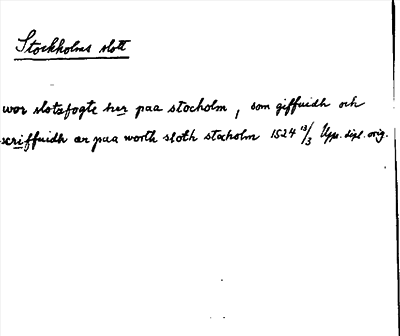 Stockholms slott
wor slotzfogte her paa stocholm, som giffuidh och
scriffuidh ær paa worth sloth stocholm 1524 13/3 Upps. dipl. orig.